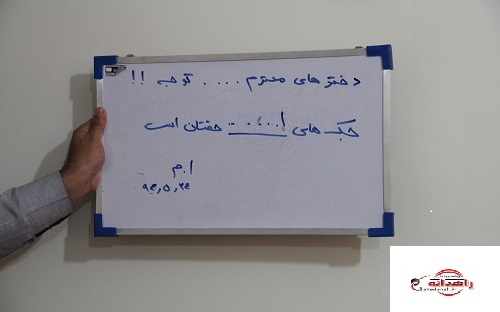 دختر های محترم .... توجه !!
جک های ا..... حقتان است
ا.م
۹۴,۵,۲۴
راهدانه